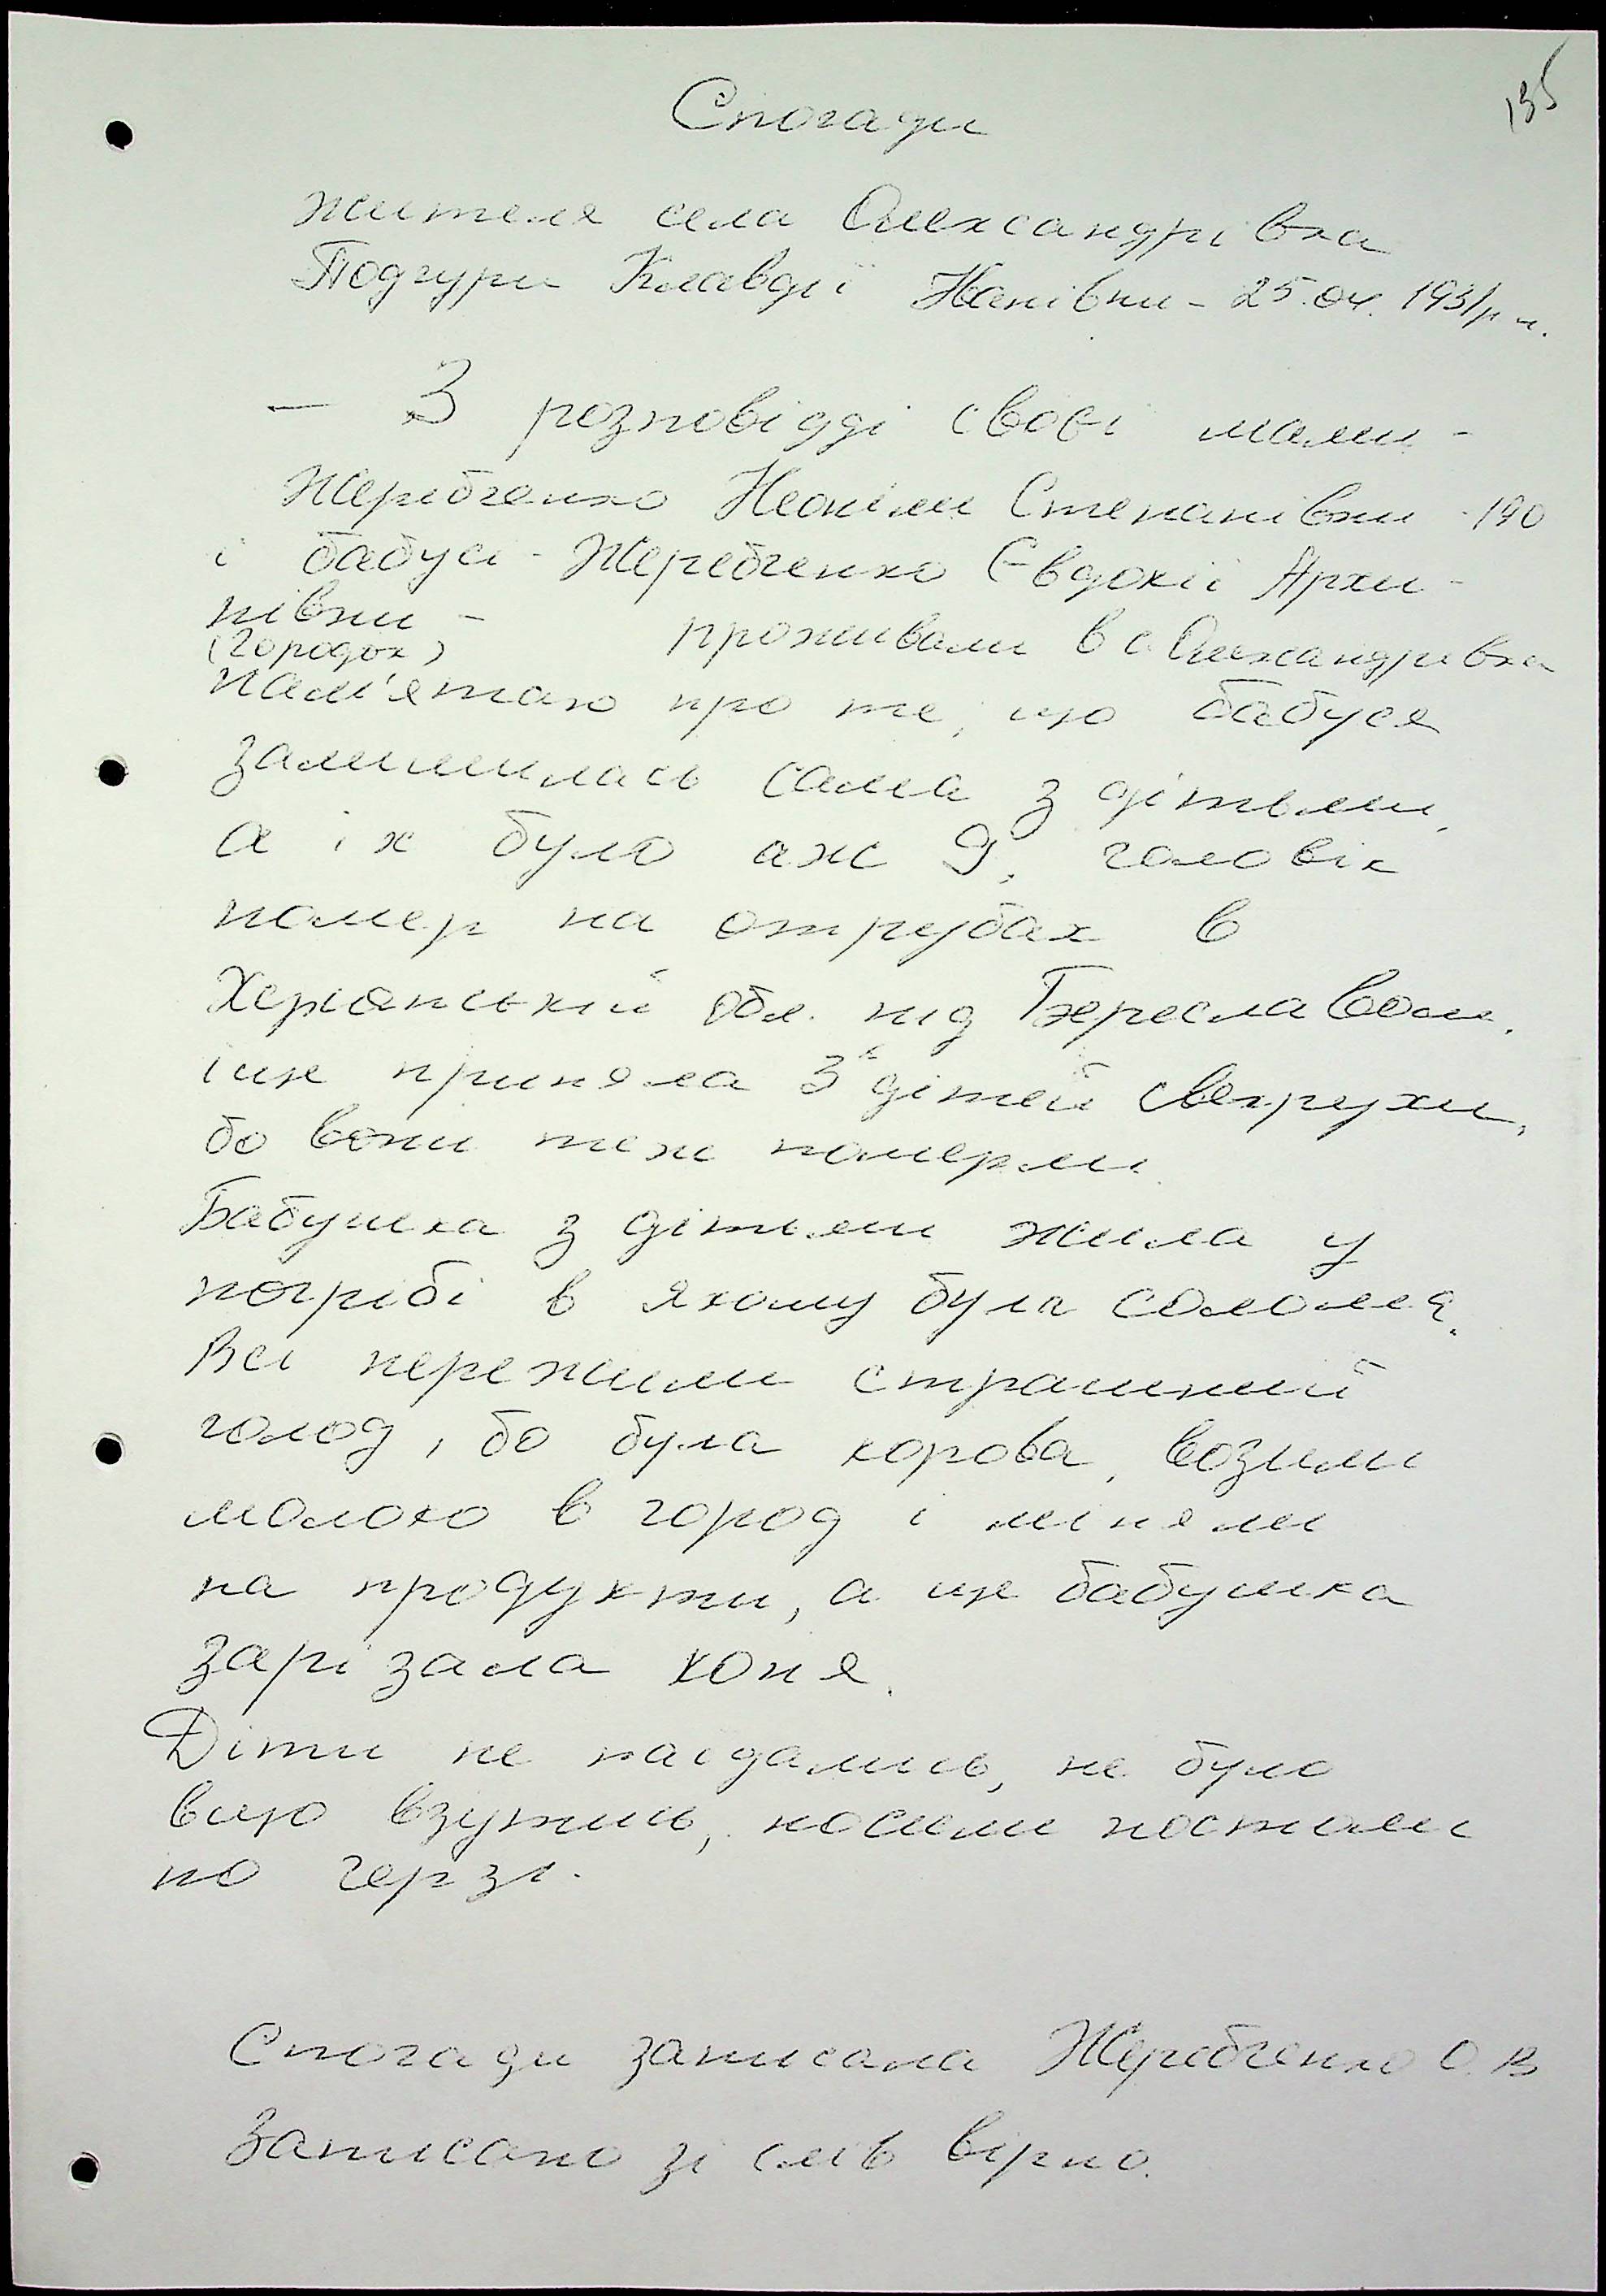 135
Спогади
жителя села Олександрівка
Подгури Клавдії Іванівни - 25.04.1931р н.
— З розповідді своєї мами -
Жеребченко Неоніли Степанівни - 190
і бабусі - Жеребченко Євдокії Архи-
півни - проживали в с. Олександрівка
(Городок)
Пам'ятаю про те, що бабуся
залишилась сама з дітьми,
а їх було аж 9, чоловік
помер на отрубах в
Херсонській обл. під Береславом.
і ще приняла 3х дітей свекрухи,
бо вони теж померли.
Бабушка з дітьми жила у
погрібі в якому була солома.
Всі пережили страшний
голод, бо була корова, возили
молоко в город і міняли
на продукти, а ще бабушка
зарізала коня.
Діти не наїдались, не було
вщо взутись, носили постоли
по черзі.
Спогади записала Жеребченко О.В
Записано зі слів вірно.